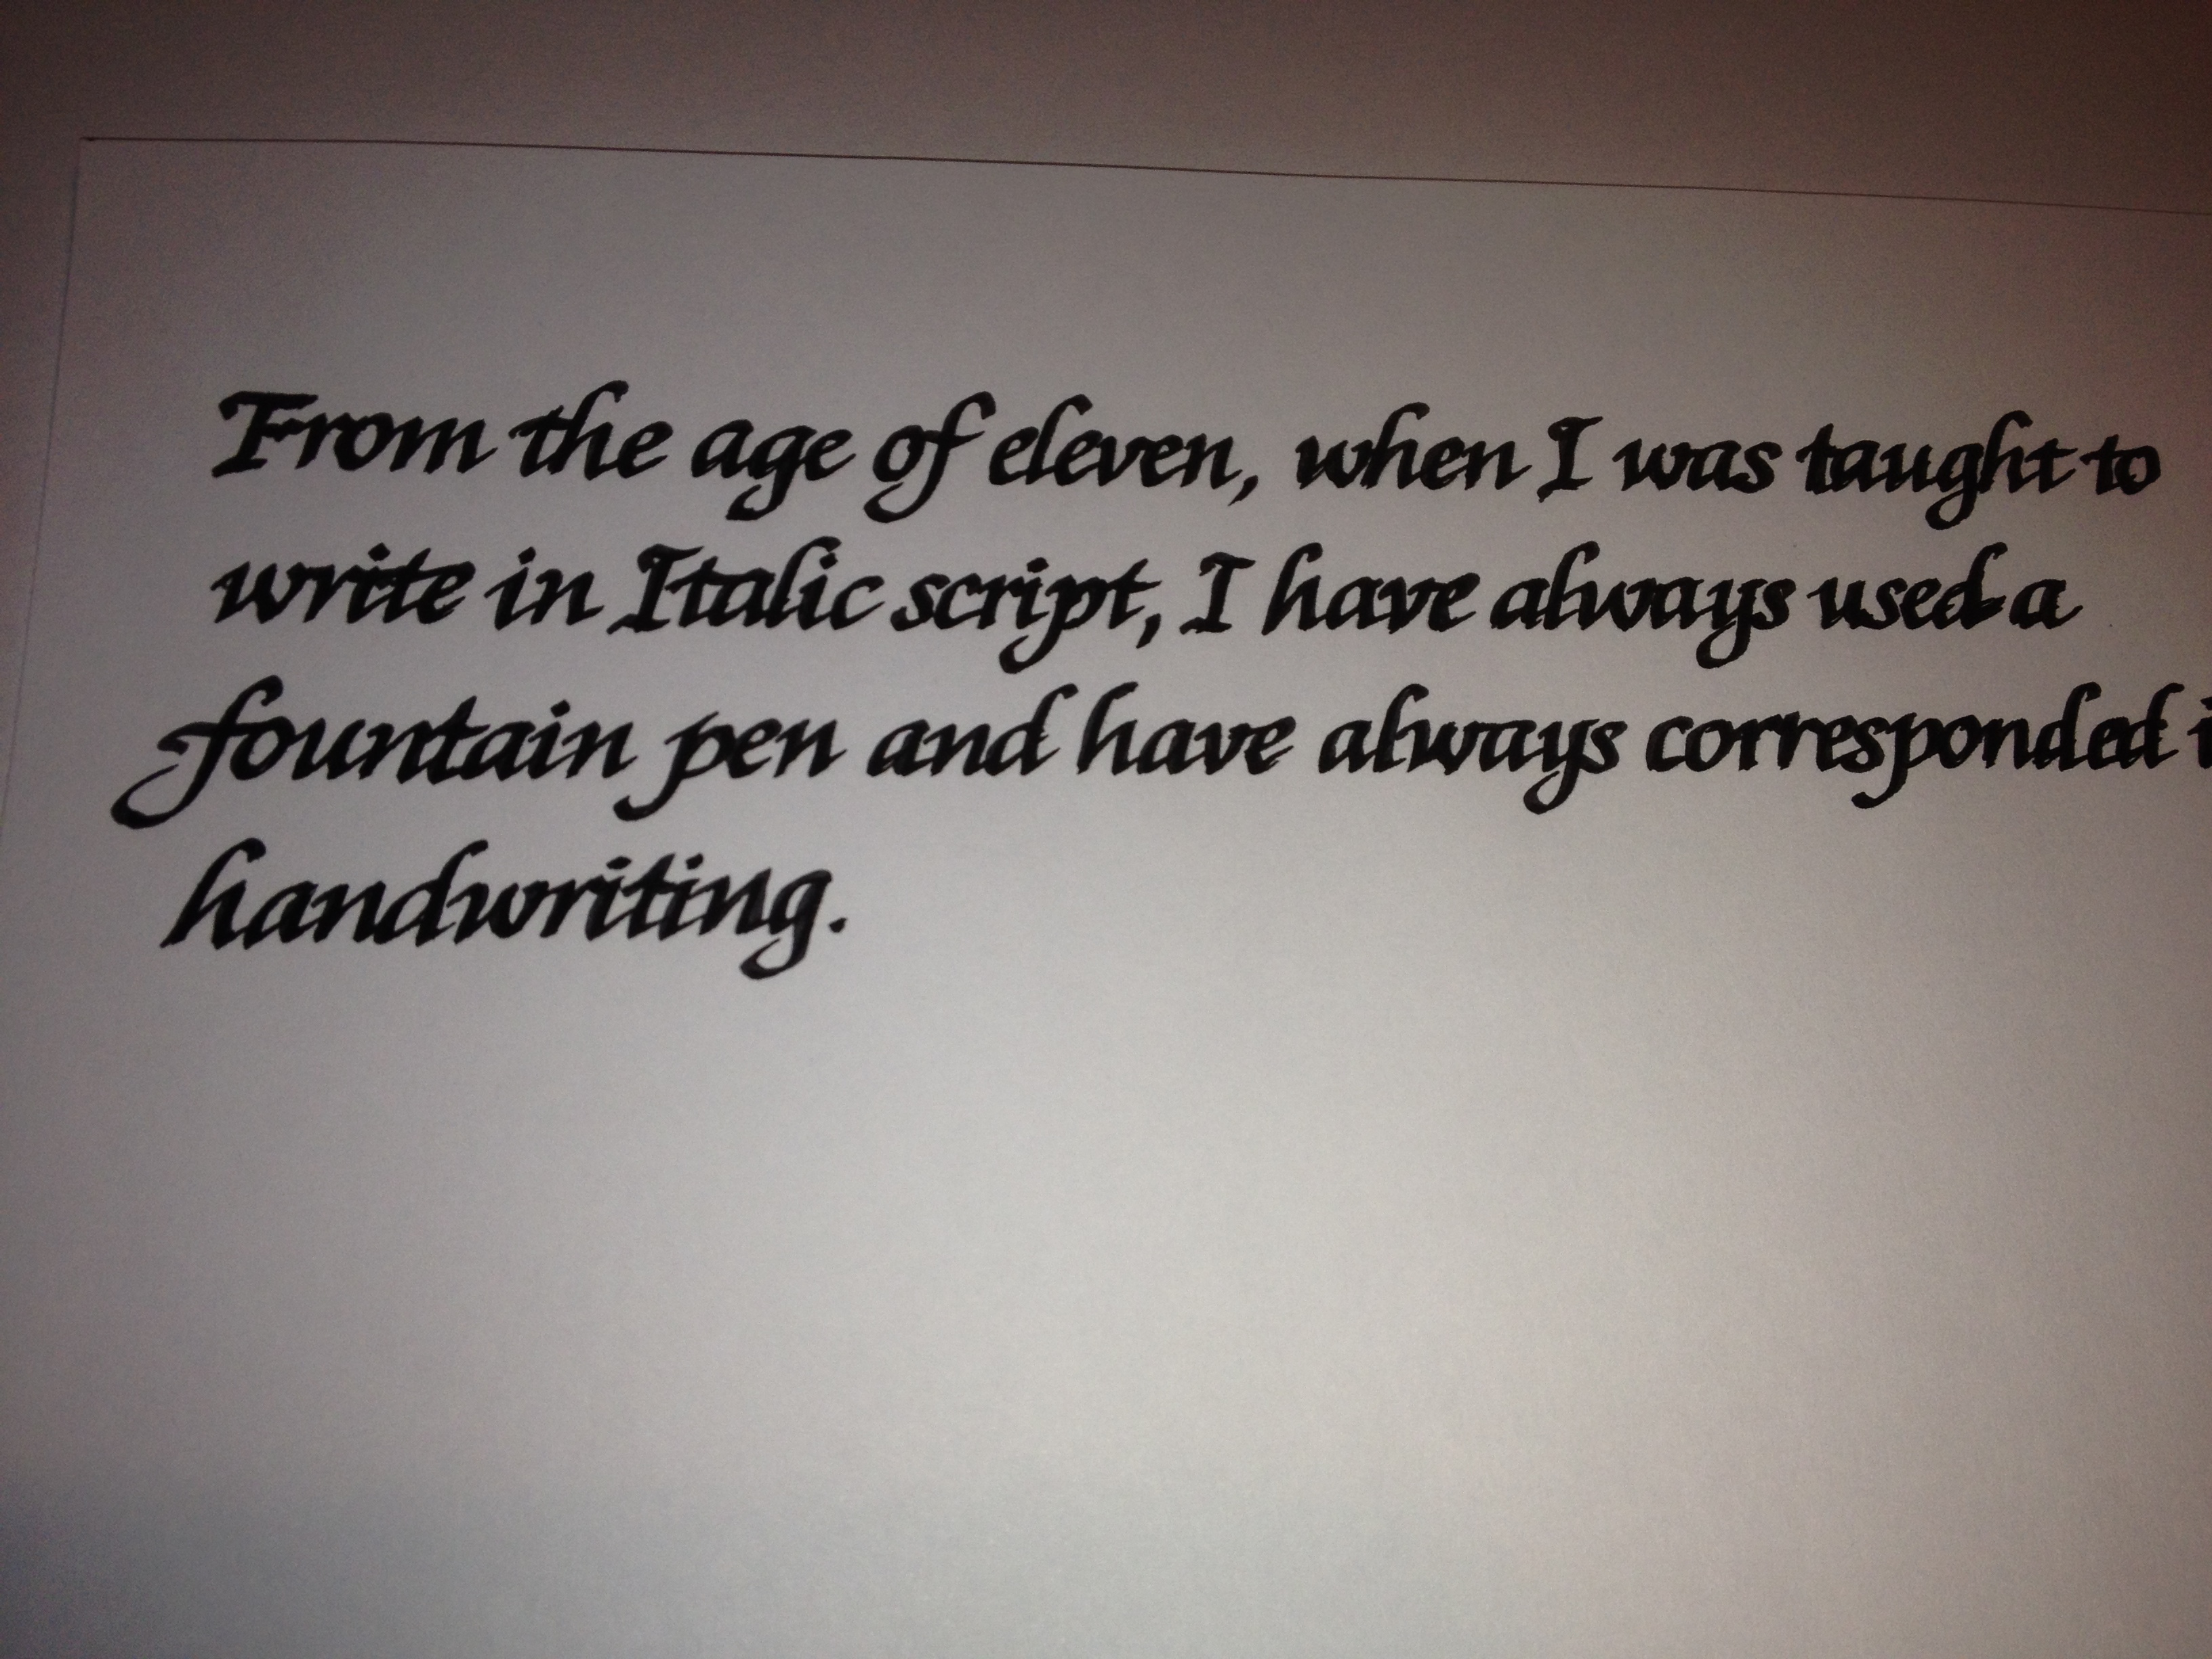 From the age of eleven, when I was taught to
write in Italic script, I have always used a
fountain pen and have always corresponded
handwriting.